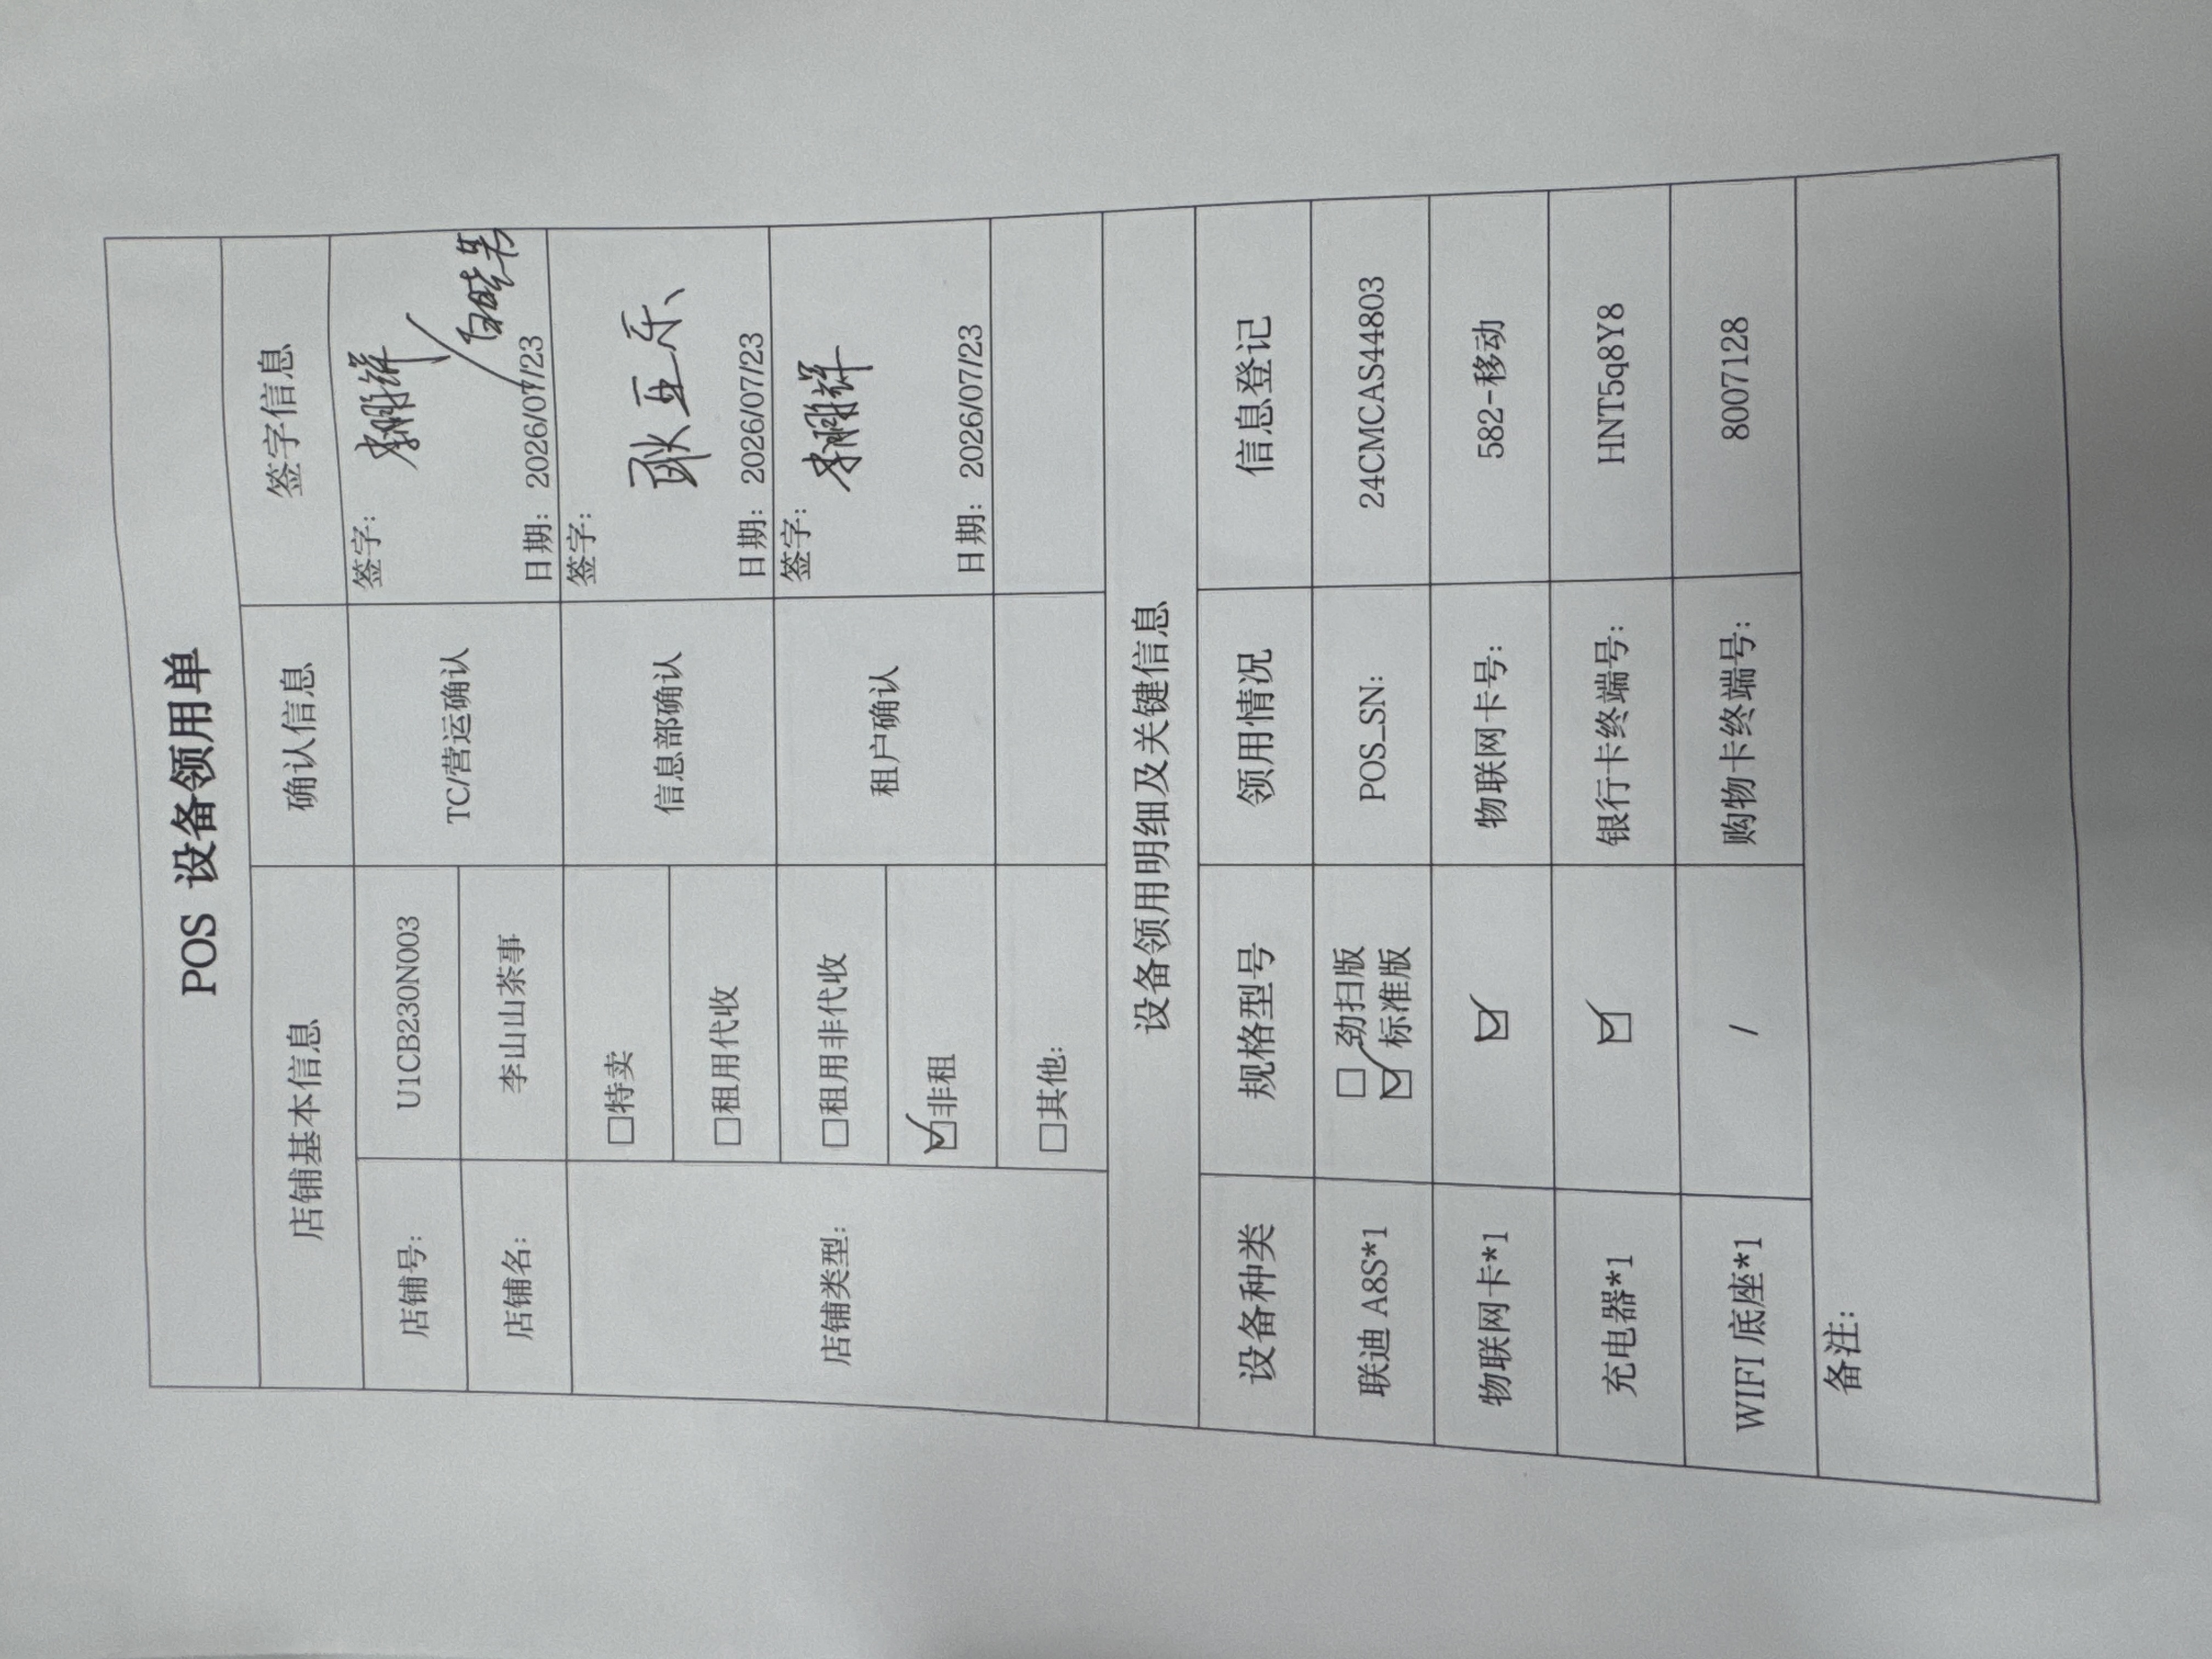 POS 设备领用单
店铺基本信息 确认信息 签字信息
店铺号: U1CB230N003 TC/营运确认 签字:
店铺名: 李山山茶事 日期: 2026/07/23
店铺类型: □特卖 信息部确认 签字: 耿亚乐
□租用代收 日期: 2026/07/23
□租用非代收 租户确认 签字:
☑非租 日期: 2026/07/23
□其他:
设备领用明细及关键信息
设备种类 规格型号 领用情况 信息登记
联迪 A8S*1 □ 劲扫版 POS_SN: 24CMCAS44803
☑ 标准版
物联网卡*1 ☑ 物联网卡号: 582-移动
充电器*1 ☑ 银行卡终端号: HNT5q8Y8
WIFI 底座*1 / 购物卡终端号: 8007128
备注: